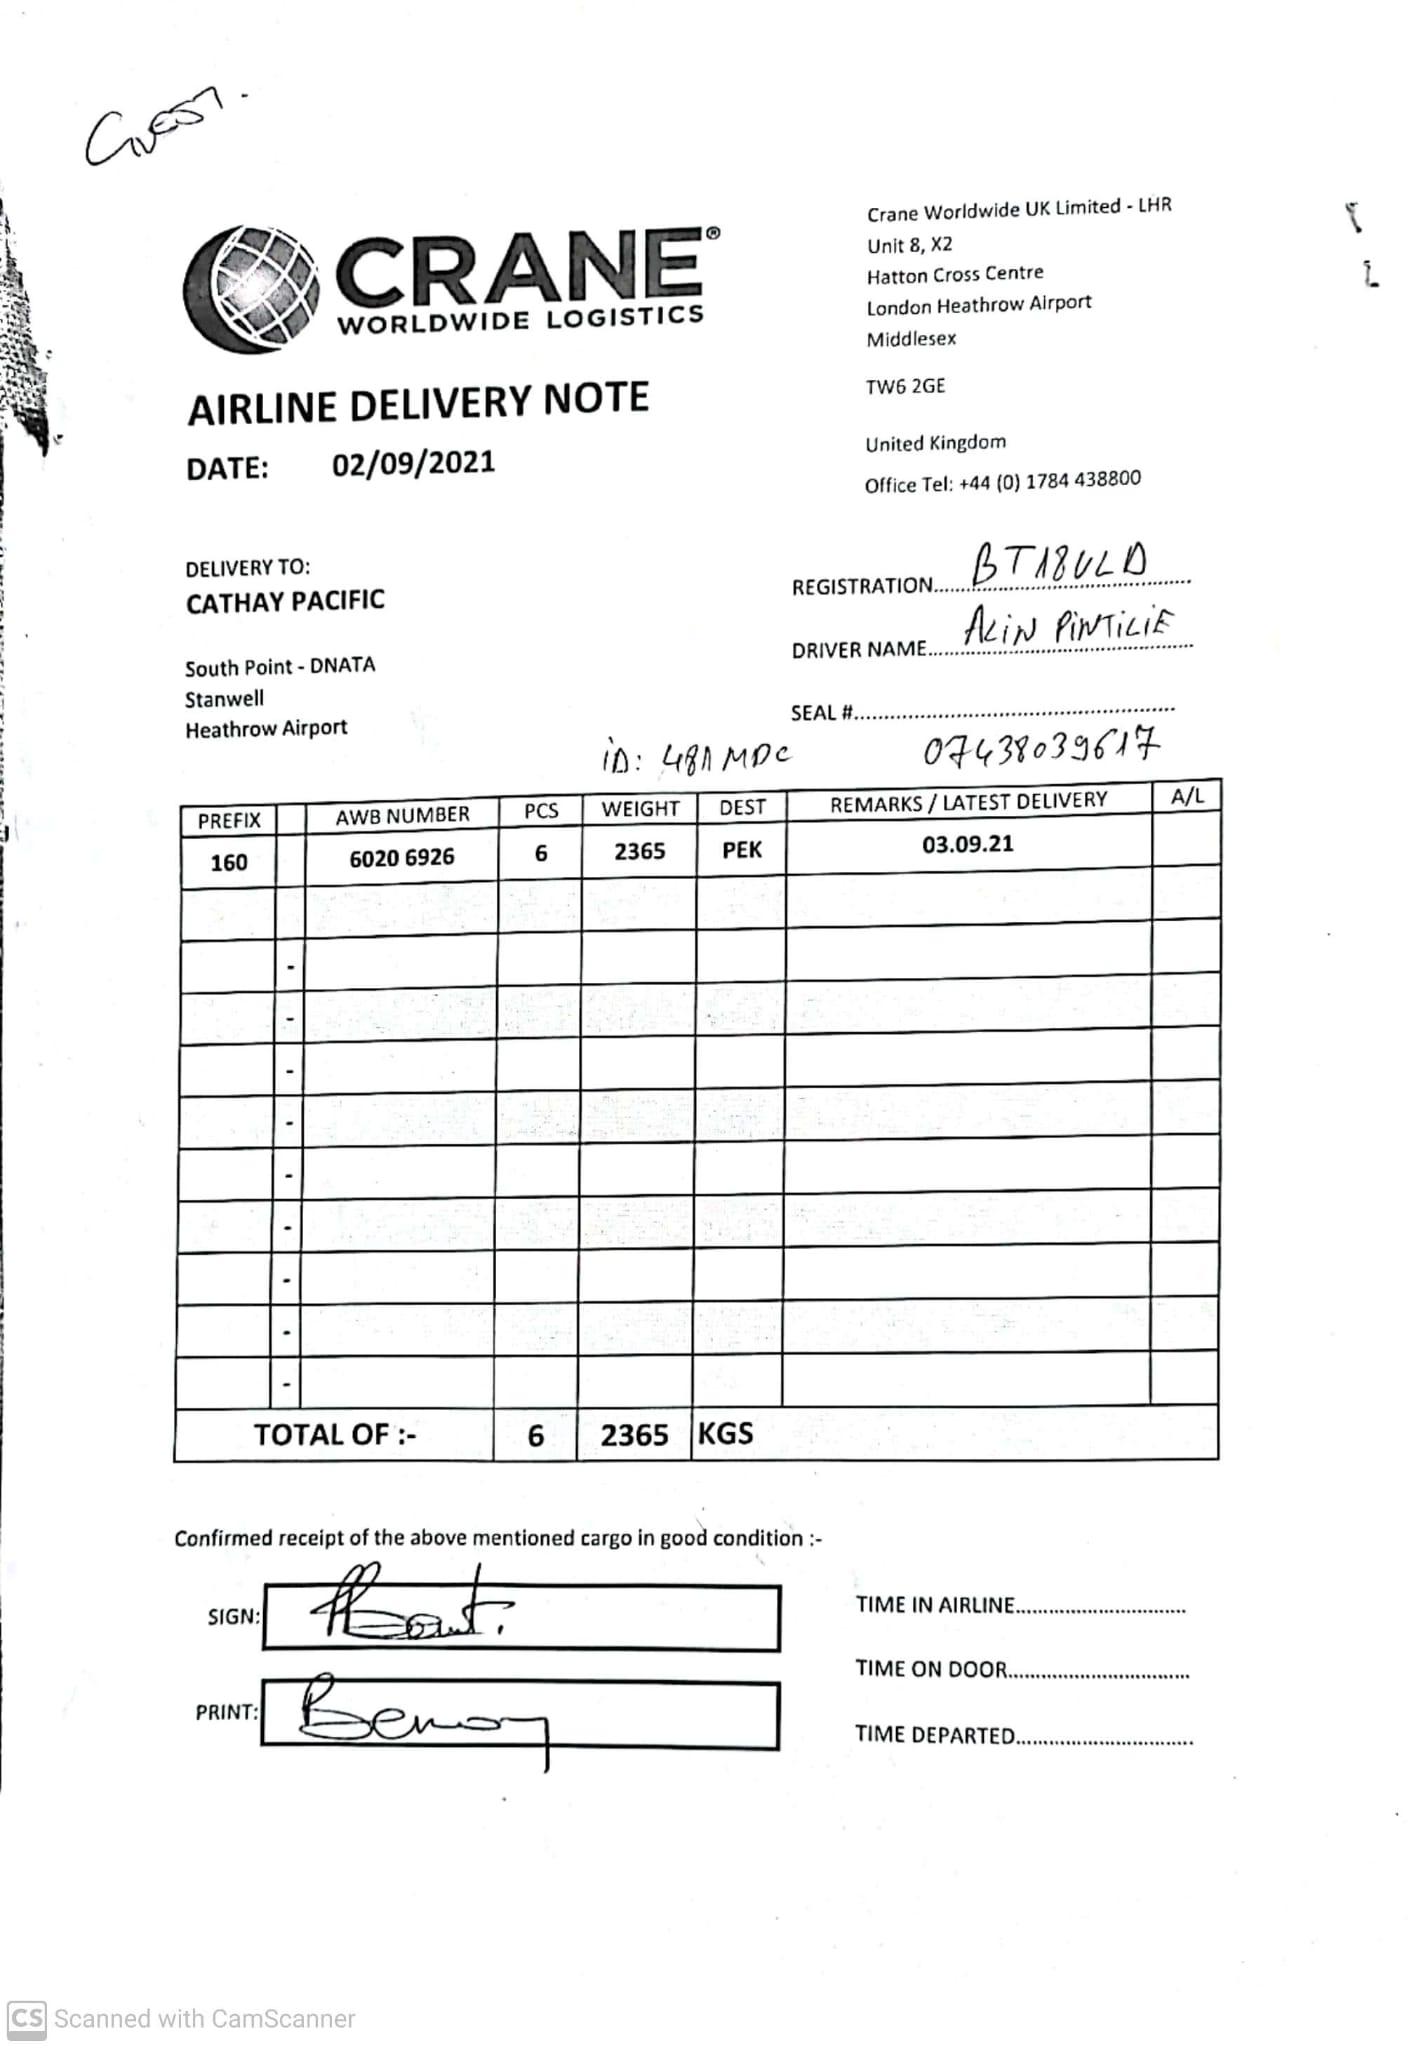 CRANE®
WORLDWIDE LOGISTICS
Crane Worldwide UK Limited - LHR
Unit 8, X2
Hatton Cross Centre
London Heathrow Airport
Middlesex
TW6 2GE
United Kingdom
Office Tel: +44 (0) 1784 438800
AIRLINE DELIVERY NOTE
DATE: 02/09/2021
DELIVERY TO:
CATHAY PACIFIC
South Point - DNATA
Stanwell
Heathrow Airport
REGISTRATION..... BT18ULD
DRIVER NAME..... ALIN PINTILIE
SEAL #.....
iD: 481 MDC 07438039617
PREFIX AWB NUMBER PCS WEIGHT DEST REMARKS / LATEST DELIVERY A/L
160 6020 6926 6 2365 PEK 03.09.21
-
-
-
-
-
-
-
-
-
TOTAL OF :- 6 2365 KGS
Confirmed receipt of the above mentioned cargo in good condition :-
SIGN:
PRINT:
TIME IN AIRLINE.....
TIME ON DOOR.....
TIME DEPARTED.....
CS Scanned with CamScanner